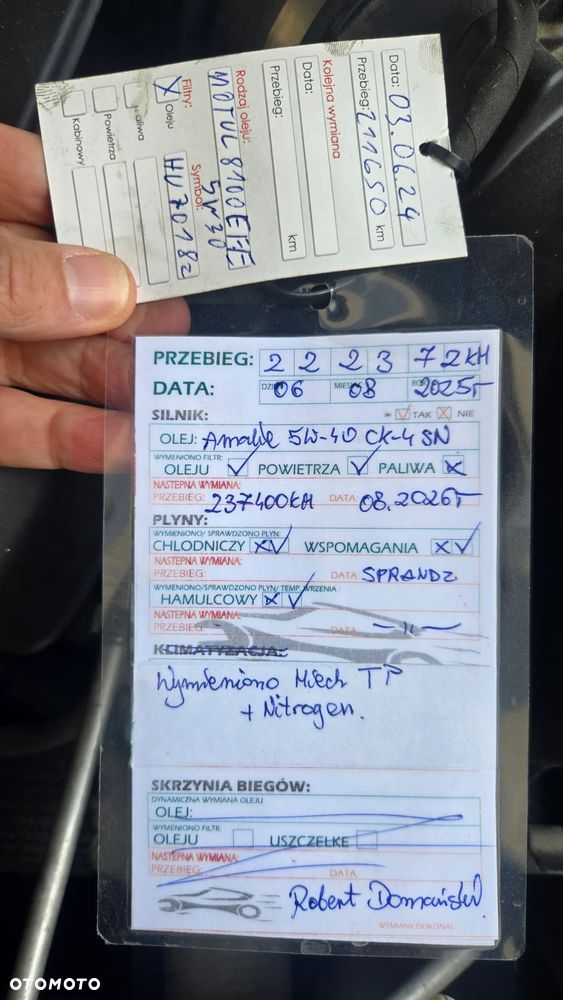 Data: 03.06.24
Przebieg: 211650 km
Kolejna wymiana
Data:
Przebieg: km
Rodzaj oleju:
MOTUL 8100 EFE
5W30
Filtry: Symbol:
X Oleju HU7018z
Paliwa
Powietrza
Kabinowy
PRZEBIEG: 2 2 2 3 7 2 KM
DATA: DZIEŃ 06 MIESIĄC 08 ROK 2025r
SILNIK: * TAK NIE
OLEJ: Amalie 5W-40 CK-4 SN
WYMIENIONO FILTR:
OLEJU POWIETRZA PALIWA
NASTEPNA WYMIANA:
PRZEBIEG: 237400KM DATA: 08.2026r
PLYNY:
WYMIENIONO/ SPRAWDZONO PLYN:
CHLODNICZY WSPOMAGANIA
NASTEPNA WYMIANA:
PRZEBIEG: DATA: SPRAWDZ
WYMIENIONO/SPRAWDZONO PLYN/ TEMP. WRZENIA:
HAMULCOWY
NASTEPNA WYMIANA:
PRZEBIEG: DATA: —//—
KLIMATYZACJA:
Wymieniono Miech TP
+ Nitrogen.
SKRZYNIA BIEGÓW:
DYNAMICZNA WYMIANA OLEJU
OLEJ:
WYMIENIONO FILTR:
OLEJU USZCZELKE
NASTEPNA WYMIANA:
PRZEBIEG: DATA:
Robert Domański
WYMIANY DOKONAL
OTOMOTO